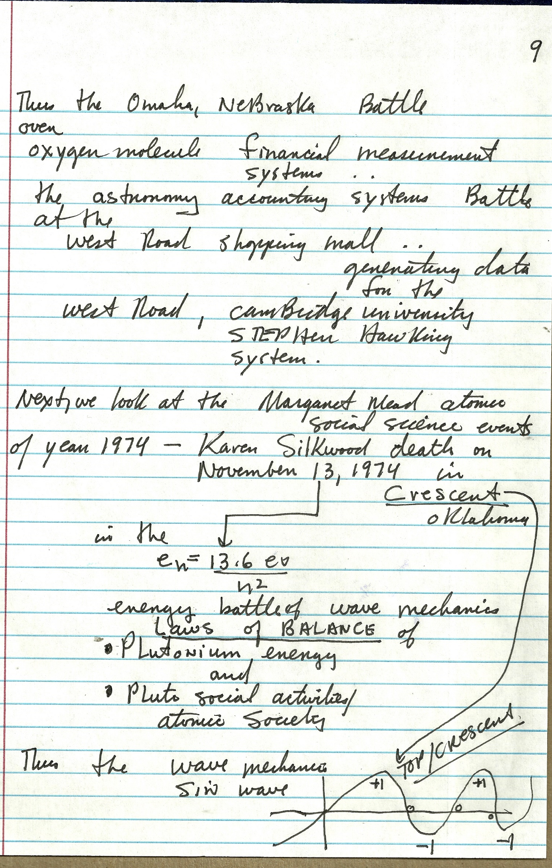 9
Thus the Omaha, NeBraska Battle
over
oxygen molecule financial measurement
systems ..
the astronomy accounting systems Battle
at the
west Road shopping mall ..
generating data
for the
west Road, camBridge university
STEPHen Hawking
system.
Next, we look at the Margaret Mead atomic
social science events
of year 1974 — Karen Silkwood death on
November 13, 1974 in
Crescent
oklahoma
in the
en = 13.6 ev
n2
energy battle of wave mechanics
Laws of BALANCE of
• PLutonium energy
and
• Pluto social activities/
atomic Society
TOP/CRESCENT
Thus the wave mechanics
sin wave
+1 +1
0 0 0
-1 -1